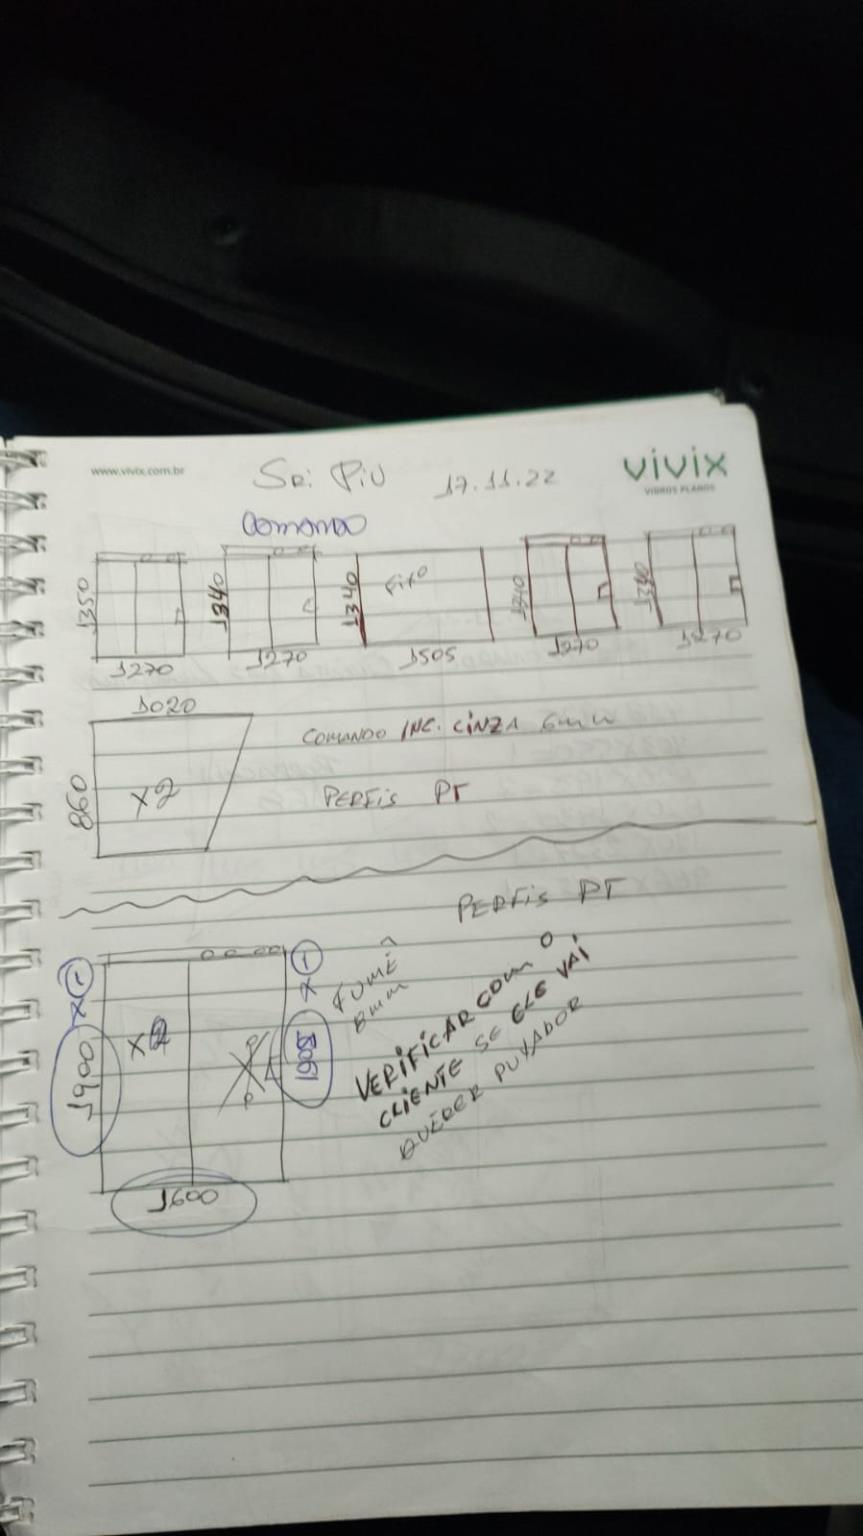 www.vivix.com.br
Sr: Piu 17.11.22
vivix
VIDROS PLANOS
comando
1350 1340 1340 Fixo 1340
1270 1270 1505 1270 1270
1020
COMANDO INC. CINZA 6mm
860 x2
PERFis PT
PERFis PT
1 1
x x
FUMÊ
8mm
1900 x2
1600
VERIFICAR COM O
CLIENTE SE ELE VAI
QUERER PUXADOR